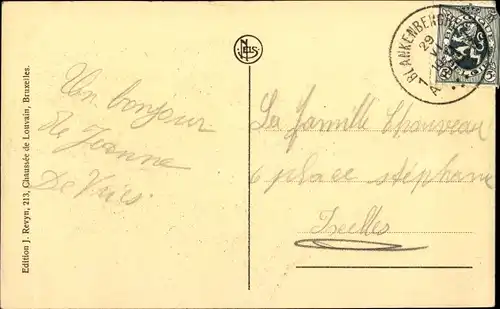 Edition J. Revyn, 213, Chaussée de Louvain, Bruxelles.
Un bonjour
de Jeanne
De Vries
NELS
BLANKENBERGHE
29
La famille Chauveau
6 place stéphanie
Ixelles